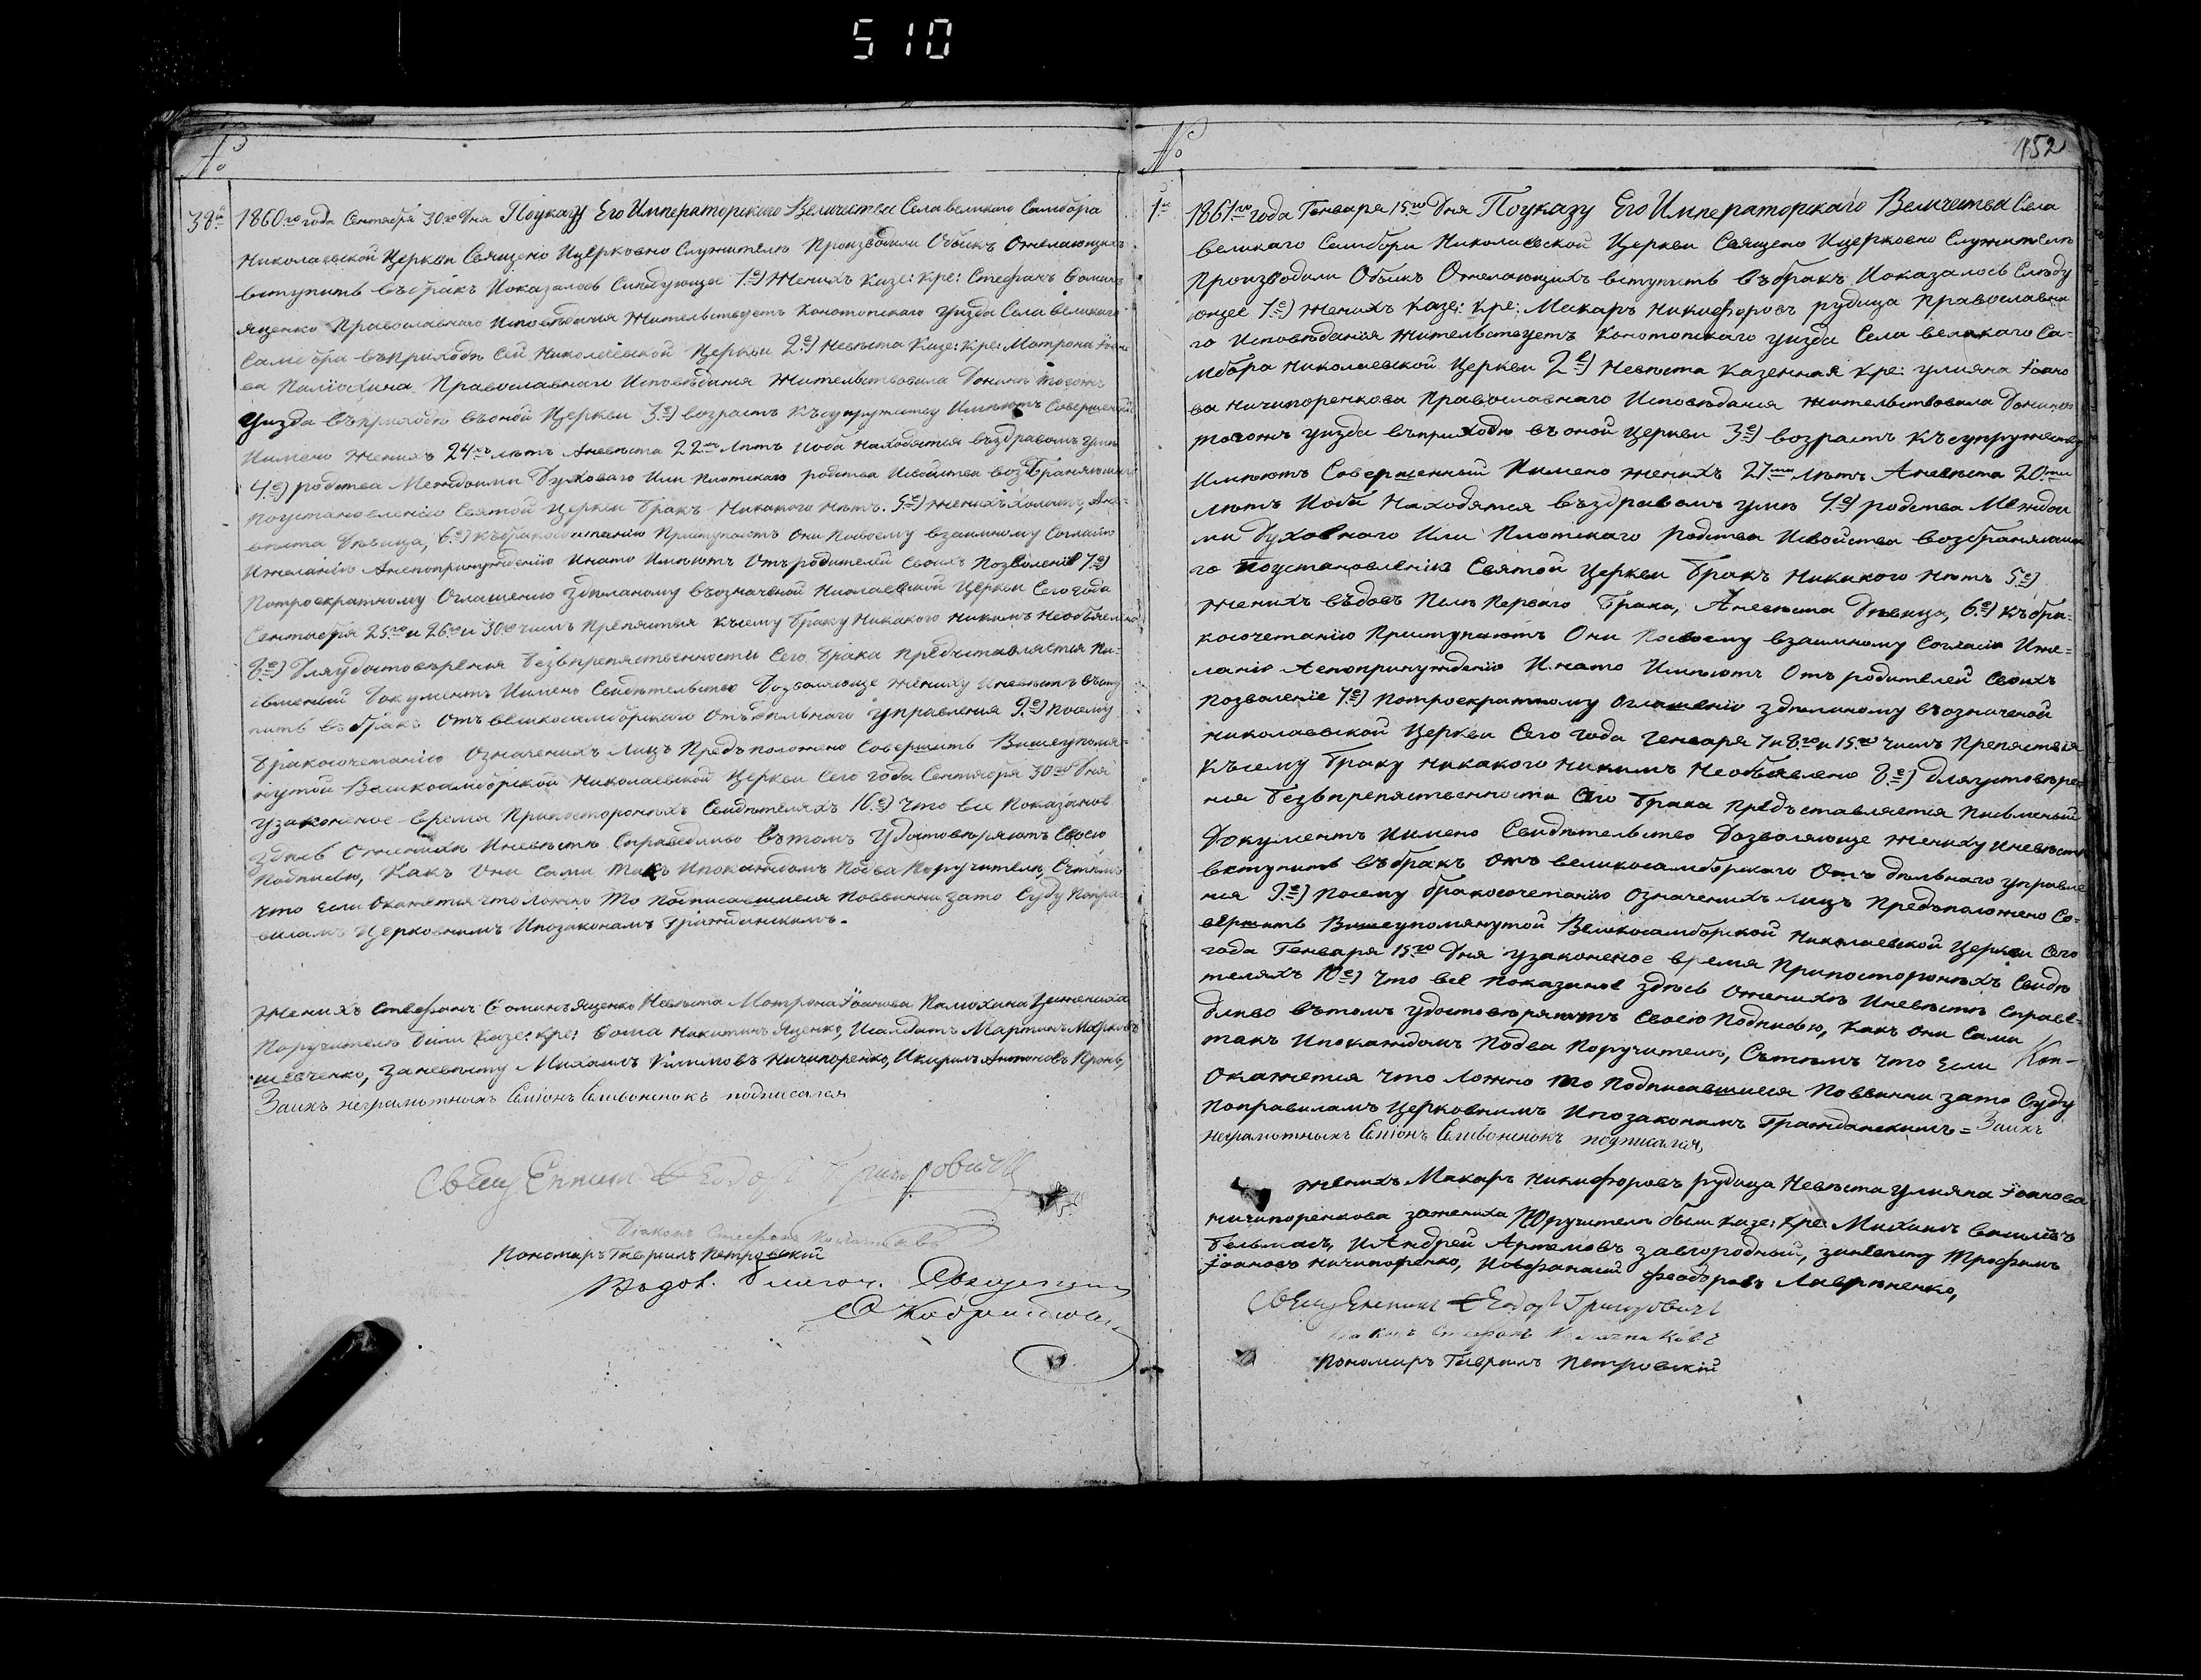 510
№
38й
1860го года Сентября 30го дня Поуказу Его Императорскаго Величества Села великаго Самбора
Николаевской Церкви Священо Ицерковно Служители Производили Обыскъ Ожелающихъ
вступить вбракъ Ипоказалось Следующее 1е) Женихъ Казе: Кре: Стефанъ Фоминъ
Яценко Православнаго Исповеданія Жительствуетъ Конотопскаго уизда Села великаго
Самбора въприходе Сей Николаевской Церкви 2е) Невеста Казе: Кре: Мотрона Іоано
ва Православнаго Исповеданія Жительствовала Донине тогожъ
Уизда въприходе въоной Церкви 3е) возрастъ Къ супружеству Имеютъ Совершеный
Имено Женихъ 24хъ летъ Аневеста 22хъ летъ Иоба Находятся въздравомъ уме
4е) родства Междоими Духовнаго Или Плотскаго родства Исвойства возбраняющаго
Поустановленію Святой Церкви бракъ Никакого нетъ. 5е) Женихъ Холостъ, Ане-
веста Девица, 6е) Къбракосочетанію Приступаютъ Они Посвоему взаимному Согласію
Ижеланію Анепопринужденію Инато Имеютъ Отъродителей Своихъ Позволеніе 7е)
Потроекратному Оглашенію зделаному въозначеной Николаевской Церкви Сего года
Сентября 25го и 26го и 30го числъ Препятыя Къ сему браку Никакого никимъ Необъявлено
8е) Дляудостоверенія безъпрепятственности Сего брака Предъставляется Пи-
сьменый Документъ Имено Свидетельство Дозволяюще Жениху Иневесте всту
пить вбракъ Отъ великосамборскаго Отъдельнаго Управленія 9е) Посему
бракосочетанію Означеныхъ Лицъ Предъположено Совершить Вишеупомя-
нутой Великосамборской Николаевской Церкви Сего года Сентября 30го Дня
Узаконеное время Припостороныхъ Свидетеляхъ 10е) Что все Показаное
здесь Ожених Иневесте Справедливо Вътомъ Удостоверяютъ Своею
Подписью, Какъ Они Сами такъ Ипокаждомъ Подва Поручителя, Сътемъ
что Если Окажется что ложно То Подписавшиеся Повинни зато Суду Попра-
виламъ Церковнимъ Ипозаконамъ Гражданскимъ.
Женихъ Стефанъ Фоминъ Яценко Невеста Мотрона Іоанова Зажениха
Поручители били Казе: Кре: Фома Никитинъ Яценко, Исалдатъ Мартинъ Марковъ
Шевченко, Заневесту Михаилъ Ничипоренко, Икирилъ Антоновъ
Заихъ неграмотныхъ Семіонъ подписался
Священникъ Феодоръ Григоровичъ
Діаконъ Стефанъ
Пономаръ Гавриилъ Петровскій
№
152
1й
1861го года Генваря 15го Дня Поуказу Его Императорскаго Величества Села
великаго Самбора Николаевской Церкви Священо Ицерковно Служители
Производили Обыскъ Ожелающихъ вступить Въбракъ Ипоказалось Следу
ющее 1е) Женихъ Казе: Кре: Макаръ Никифоровъ рудица Православна
го Исповеданія Жительствуетъ Конотопскаго уизда Села великаго Са-
мбора Николаевской Церкви 2е) Невеста Казенная Кре: улияна Іоано
ва Ничипоренкова Православнаго Исповеданія Жительствовала Донине
тогожъ уизда въприходе въоной Церкви 3е) возрастъ Къ супружеству
Имеютъ Совершенный Имено Женихъ 27ми летъ Аневеста 20ти
летъ Иоба Находятся въздравомъ уме 4е) родства Междои
ми Духовнаго Или Плотскаго родства Исвойства возбраняюща
го Поустановленію Святой Церкви бракъ Никакого нетъ 5е)
Женихъ въдовъ После Перваго брака, Аневеста Девица, 6е) Къбра-
косочетанію Приступаютъ Они Посвоему взаимному Согласію Иже-
ланію Анепопринужденію Инато Имеютъ Отъ родителей Своихъ
Позволеніе 7е) Потроекратному Оглашенію зделаному въозначеной
Николаевской Церкви Сего года Генваря 7 и 8го и 15го числъ Препятствія
Късему браку Никакого Никимъ Необъявлено 8е) Дляудостовере
нія безъпрепятственности Сего брака Предъставляется Письменый
Документъ Имено Свидетельство Дозволяюще Жениху Иневесте
вступить Въбракъ Отъ великосамборскаго Отъ дельнаго управле
нія 9е) Посему бракосочетанію Означеныхъ Лицъ Предъположено Со-
вершить Вишеупомянутой Великосамборской Николаевской Церкви Сего
года Генваря 15го Дня узаконеное время Припостороныхъ Свиде
теляхъ 10е) Что все Показаное здесь Ожених Иневесте Справе-
дливо Вътомъ удостоверяютъ Своею Подписью, Какъ Они Сами
такъ Ипокаждомъ Подва Поручителя, Сътемъ Что Если
Окажется Что Ложно То Подписавшиеся Повинни зато Суду
Поправиламъ Церковнимъ Ипозаконамъ Гражданскимъ = Заихъ
неграмотныхъ Семіонъ подписался,
Женихъ Макаръ Никифоровъ рудица Невеста улияна Іоанова
Ничипоренкова зажениха Поручители были Казе: Кре: Михаилъ
ИАндрей Артемовъ завгородный, заневесту Трофимъ
Іоановъ Ничипоренко, Феодоровъ Лавриненко,
Священникъ Феодоръ Григоровичъ
Стефанъ
Пономаръ Гавриилъ Петровскій